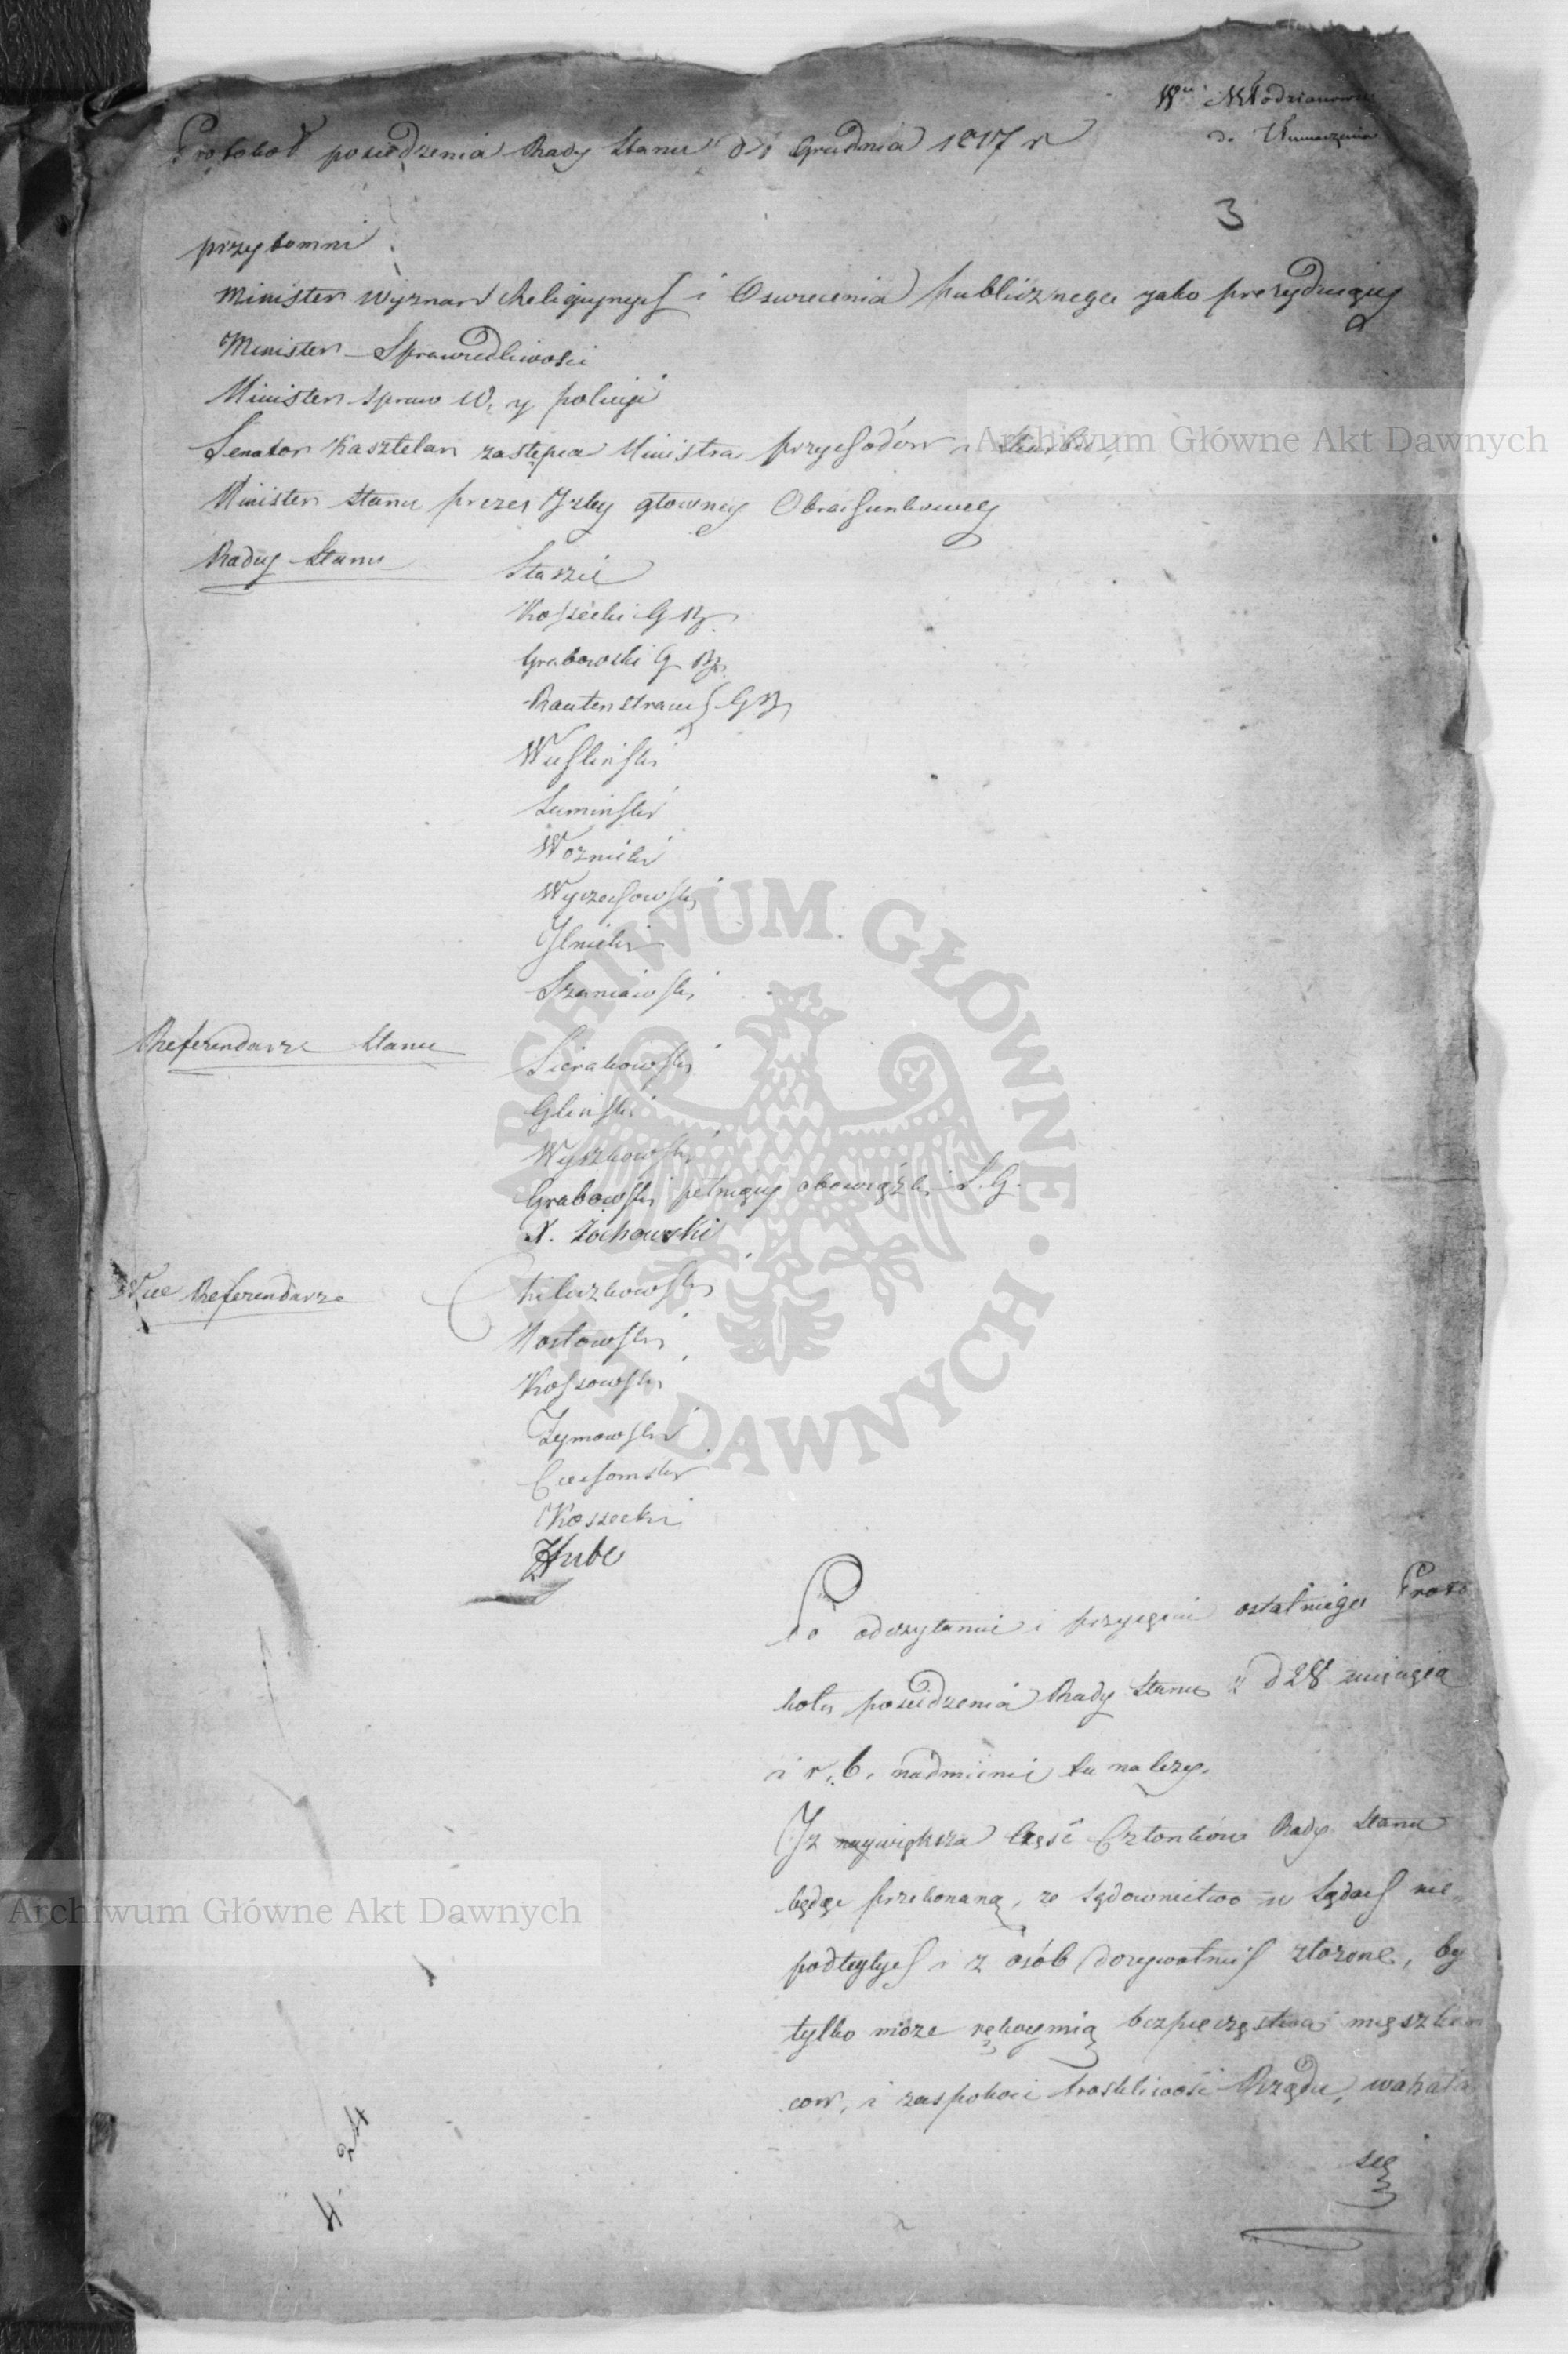 Wu Młodzianowski
do Tłumaczenia
Protokoł posiedzenia Rady Stanu d 1 Grudnia 1817 r
3
przytomni
Minister Wyznań Religijnych i Oswiecenia publicznego jako prezydujący
Minister Sprawiedliwosci
Minister Spraw W. y policyi
Senator Kasztelan zastępca Ministra przychodów i Skarbu
Minister Stanu prezes Izby głowney Obrachunkowey
Radcy Stanu
Staszic
Kossecki G B
Grabowski G B
Rautenstrauch G B
Wuslinski
Luminski
Woznicki
Wyczechowski
Ilnicki
Szaniawski
Referendarze Stanu
Sierakowski
Glinski
Wyszkowski
Grabowski pełniący obowiązki S. G.
X. Żochowski
Vice Referendarze
Kiluzkowski
Mostowski
Kossowski
Zymowski
Ciechomski
Kossecki
Hube
Po odczytaniu i przyjęciu ostatniego Proto
kołu posiedzenia Rady Stanu z d 28 miesiąca
i r. b. nadmienić tu należy.
Iż największa Część Członków Rady Stanu
będąc przekonaną, że sądownictwo w Sądach nie
podległych i z osób dożywotnich złożone, by
tylko może rękoymią bezpieczęstwa mięszkań
cow, i zaspokoić troskliwość Rządu, wahała
się
4. 24
Archiwum Główne Akt Dawnych
Archiwum Główne Akt Dawnych
ARCHIWUM GŁÓWNE AKT DAWNYCH